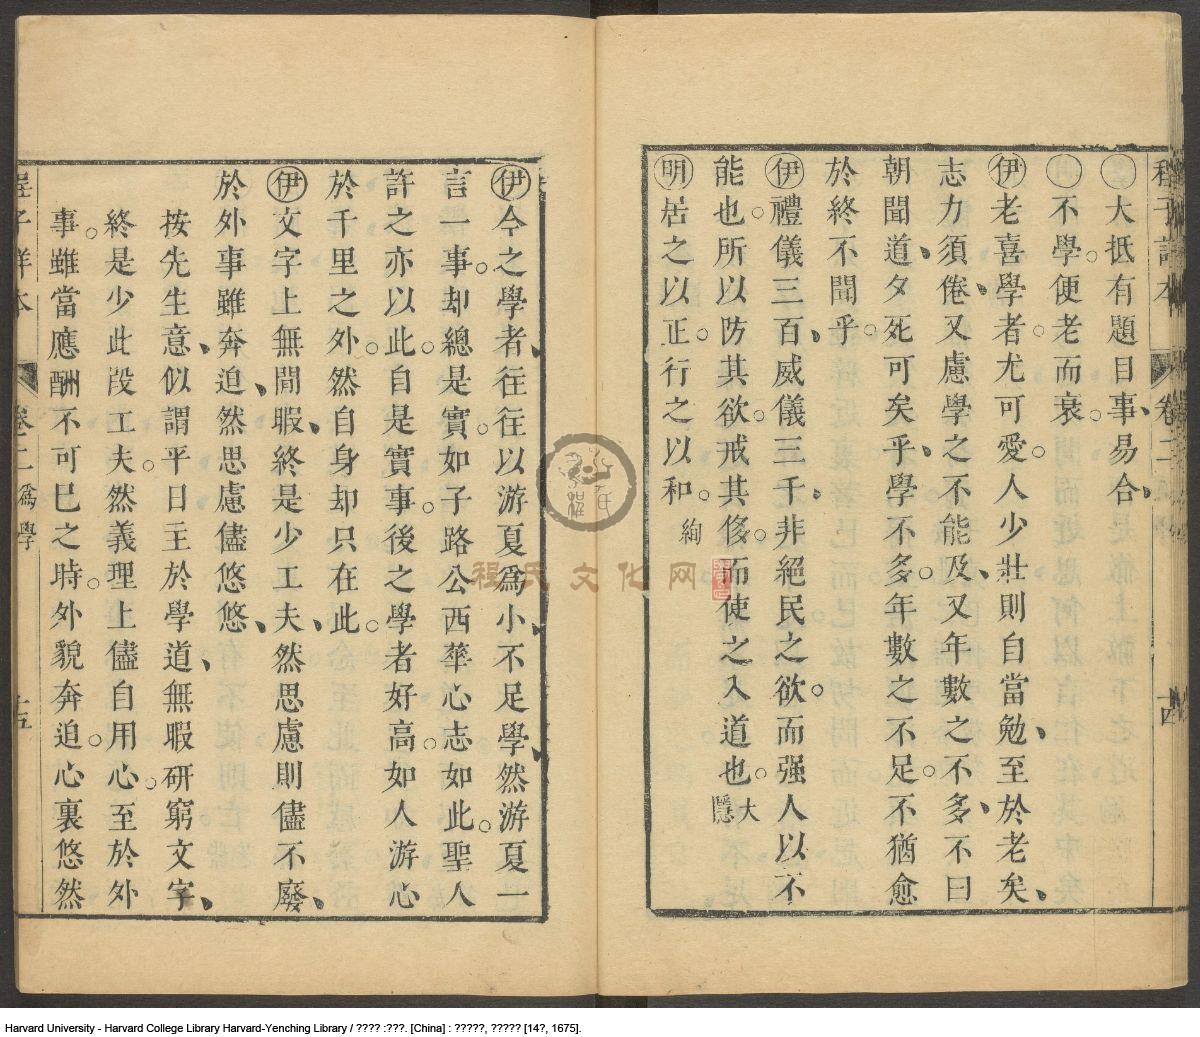 大抵有題目事、易合、
不學。便老而衰。
㊞伊老喜學者。尤可愛。人少壯則自當勉、至於老矣、
志力須倦、又慮學之不能及、又年數之不多、不曰
朝聞道、夕死可矣乎、學不多。年數之不足。不猶愈
於終不聞乎。
伊禮儀三百、威儀三千、非絕民之欲。而强人以不
能也。所以防其欲。戒其侈。而使之入道也。大隱
明居之以正。行之以和。絢
伊今之學者、往往以游夏爲小、不足學、然游夏一
言一事。却總是實。如子路公西華心志如此。聖人
許之亦以此。自是實事。後之學者好高。如人游心
於千里之外。然自身却只在此。
伊文字上無閒暇、終是少工夫、然思慮則儘不廢、
於外事雖奔迫、然思慮儘悠悠、
按先生意、似謂平日主於學道、無暇研窮文字、
終是少此段工夫。然義理上儘自用心。至於外
事。雖當應酬不可已之時。外貌奔迫。心裏悠然
程子詳本
卷二
爲學
十四
十五
程氏文化网
Harvard University - Harvard College Library Harvard-Yenching Library / ???? :???. [China] : ?????, ????? [14?, 1675].